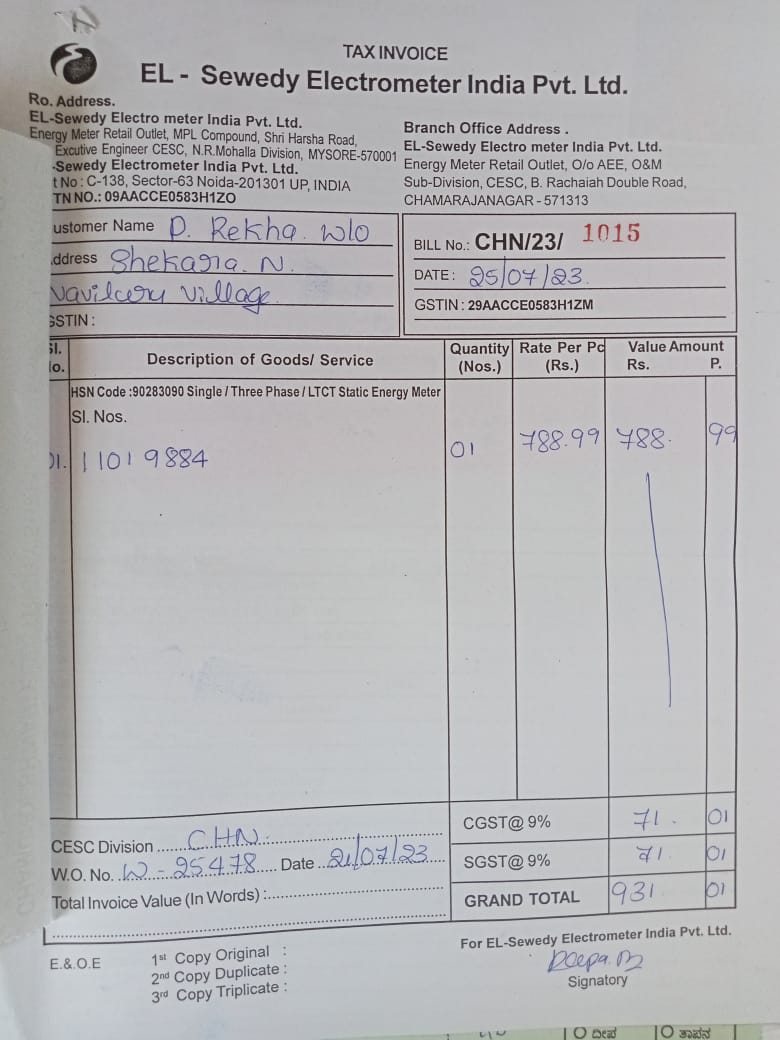 TAX INVOICE
EL - Sewedy Electrometer India Pvt. Ltd.
Ro. Address.
EL-Sewedy Electro meter India Pvt. Ltd.
Energy Meter Retail Outlet, MPL Compound, Shri Harsha Road,
Excutive Engineer CESC, N.R.Mohalla Division, MYSORE-570001
-Sewedy Electrometer India Pvt. Ltd.
t No : C-138, Sector-63 Noida-201301 UP, INDIA
TN NO.: 09AACCE0583H1ZO
Branch Office Address .
EL-Sewedy Electro meter India Pvt. Ltd.
Energy Meter Retail Outlet, O/o AEE, O&M
Sub-Division, CESC, B. Rachaiah Double Road,
CHAMARAJANAGAR - 571313
ustomer Name D. Rekha w/o
ddress Shekara. N.
Village
GSTIN :
BILL No.: CHN/23/ 1015
DATE : 25/07/23.
GSTIN : 29AACCE0583H1ZM
Sl. No. Description of Goods/ Service Quantity (Nos.) Rate Per Pc (Rs.) Value Amount Rs. P.
HSN Code :90283090 Single / Three Phase / LTCT Static Energy Meter
Sl. Nos.
01. 11019884 01 788.99 788. 99
CGST@ 9% 71. 01
SGST@ 9% 71. 01
GRAND TOTAL 931 01
CESC Division ..... CHN.
W.O. No. W - 25478 Date 21/07/23
Total Invoice Value (In Words) :
E.& O.E
1st Copy Original :
2nd Copy Duplicate :
3rd Copy Triplicate :
For EL-Sewedy Electrometer India Pvt. Ltd.
Signatory